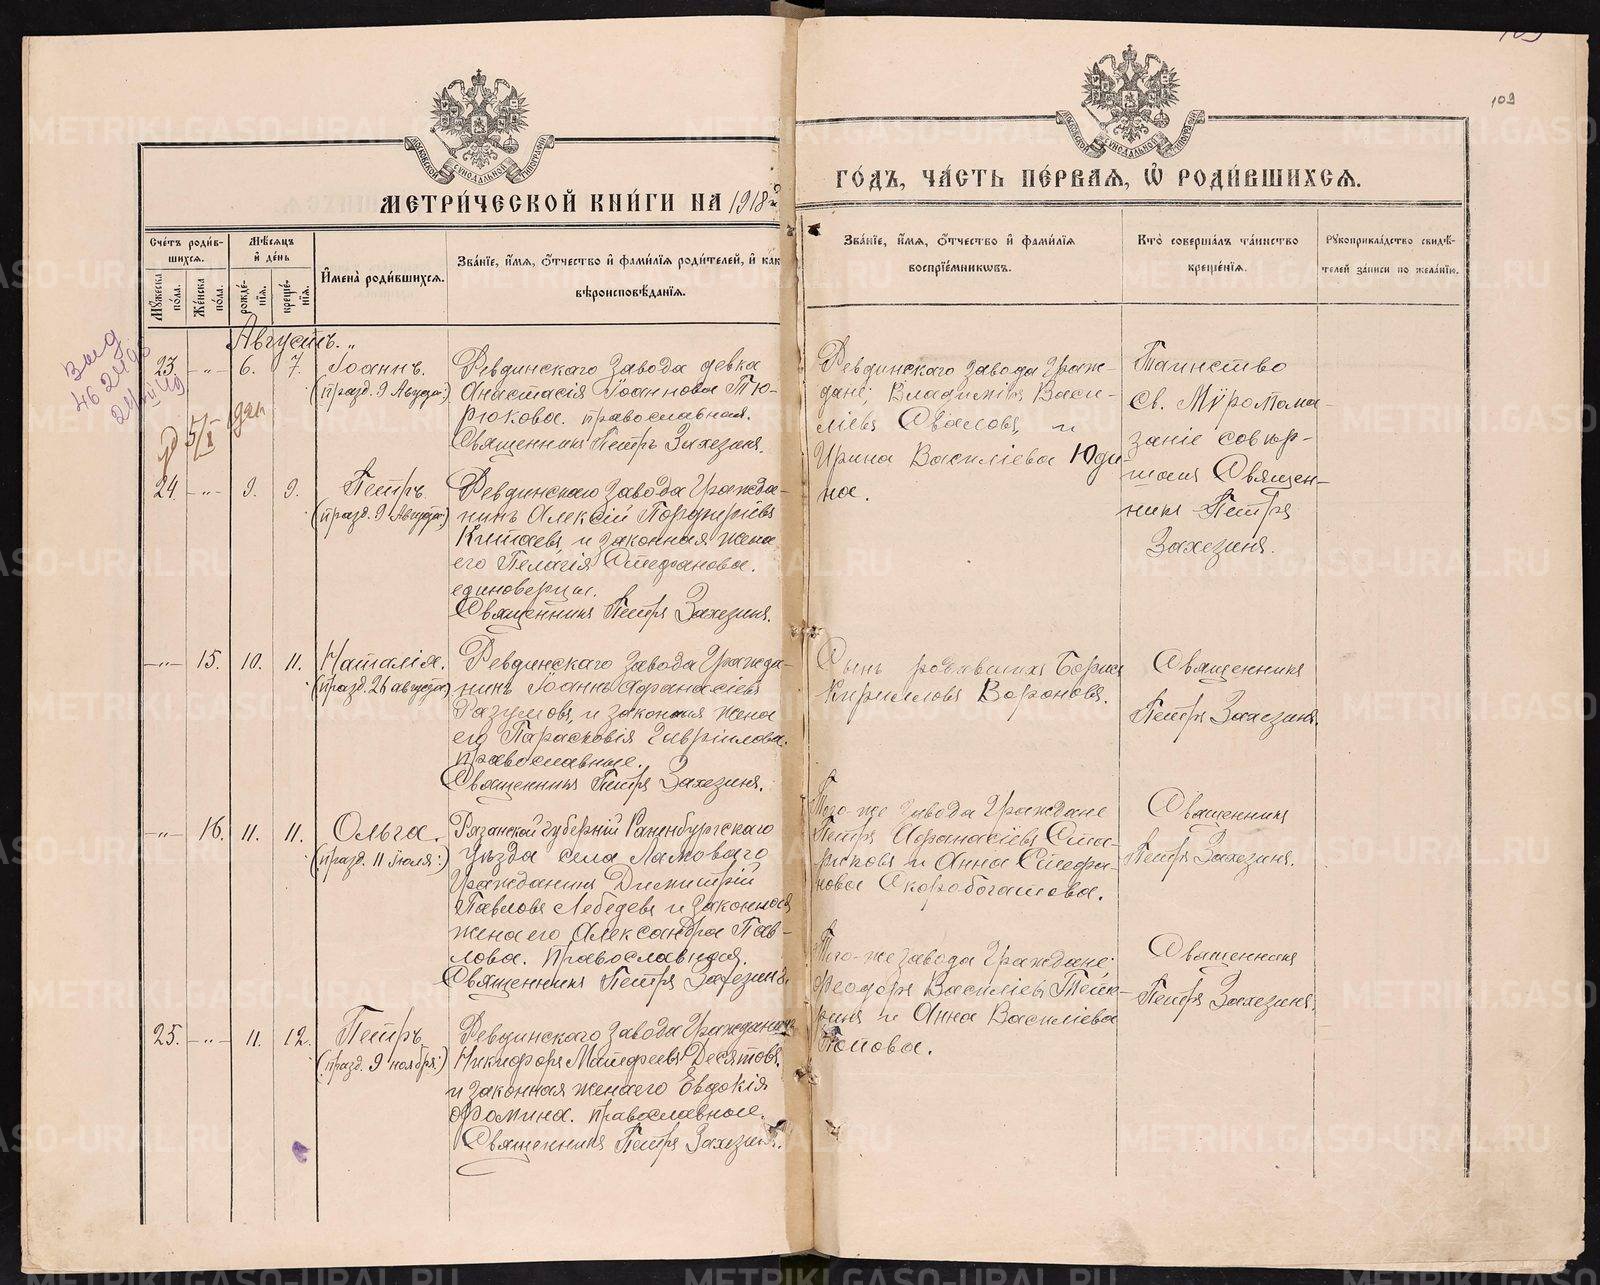 109
МЕТРИ́ЧЕСКОЙ КНИ́ГИ НА 1918
ГО́ДЪ, ЧА́СТЬ ПЕ́РВАѦ, Ѡ҆ РОДИ́ВШИХСѦ.
Сче́тъ роди́в-
шихсѧ.
Мꙋ́жеска по́ла.
Же́нска по́ла.
Мѣ́сѧцъ и҆ де́нь
рожде́-нїѧ.
креще́-нїѧ.
И҆мена̀ роди́вшихсѧ.
Зва́нїе, и҆́мѧ, ѻ҆́тчество и҆ фами́лїѧ роди́телей, и҆ как
вѣроисповѣ́данїѧ.
Зва́нїе, и҆́мѧ, ѻ҆́тчество и҆ фами́лїѧ
воспрїе́мникѡвъ.
Кто̀ соверша́лъ та́инство
креще́нїѧ.
Рꙋкоприкла́дство свидѣ́-
телей за́писи по жела́нїю.
Августъ.
23. -"- 6. 7.
Іоаннъ.
(празд. 9 Августа:)
Ревдинскаго завода девка
Анастасія Іоаннова Тю-
рюкова. православная.
Священникъ Петръ Захезинъ.
Ревдинскаго завода Граж-
дане; Владиміръ Васи-
ліевъ Сваловъ, и
Ирина Василіева Юди-
на.
Таинство
Св. Мѵропома-
заніе совер-
шалъ Священ-
никъ Петръ
Захезинъ.
24. -"- 9. 9.
Петръ.
(празд. 9 Августа:)
Ревдинскаго завода Гражда-
нинъ Алексій Порфиріевъ
Китаевъ и законная жена
его Пелагія Стефанова.
единоверцы.
Священникъ Петръ Захезинъ.
-"- 15. 10. 11.
Наталія.
(празд. 26 августа)
Ревдинскаго завода Гражда-
нинъ Іоаннъ Афанасіевъ
Разумовъ, и законная жена
его Парасковія Гавріилова.
православные.
Священникъ Петръ Захезинъ.
Сынъ Бориса
Кирилловъ Вороновъ.
Священникъ
Петръ Захезинъ.
-"- 16. 11. 11.
Ольга.
(празд. 11 Іюля:)
Рязанской Губерній Раненбургскаго
уѣзда села Ламоваго
Гражданинъ Димитрій
Павловъ Лебедевъ и законная
жена его Александра Пав-
лова. Православная.
Священникъ Петръ Захезинъ.
Того-же завода Граждане
Петръ Афанасіевъ Ста-
риковъ и Анна Стефа-
нова Скоробогатова.
Священникъ
Петръ Захезинъ.
25. -"- 11. 12.
Петръ.
(празд. 9 ноября:)
Ревдинскаго завода Гражданинъ
Никифоръ Матфеевъ Десятовъ,
и законная жена его Евдокія
Фомина. православные.
Священникъ Петръ Захезинъ.
Того-же завода Граждане:
Феодоръ Василіевъ
и Анна Василіева
Попова.
Священникъ
Петръ Захезинъ.
METRIKI.GASO-URAL.RU